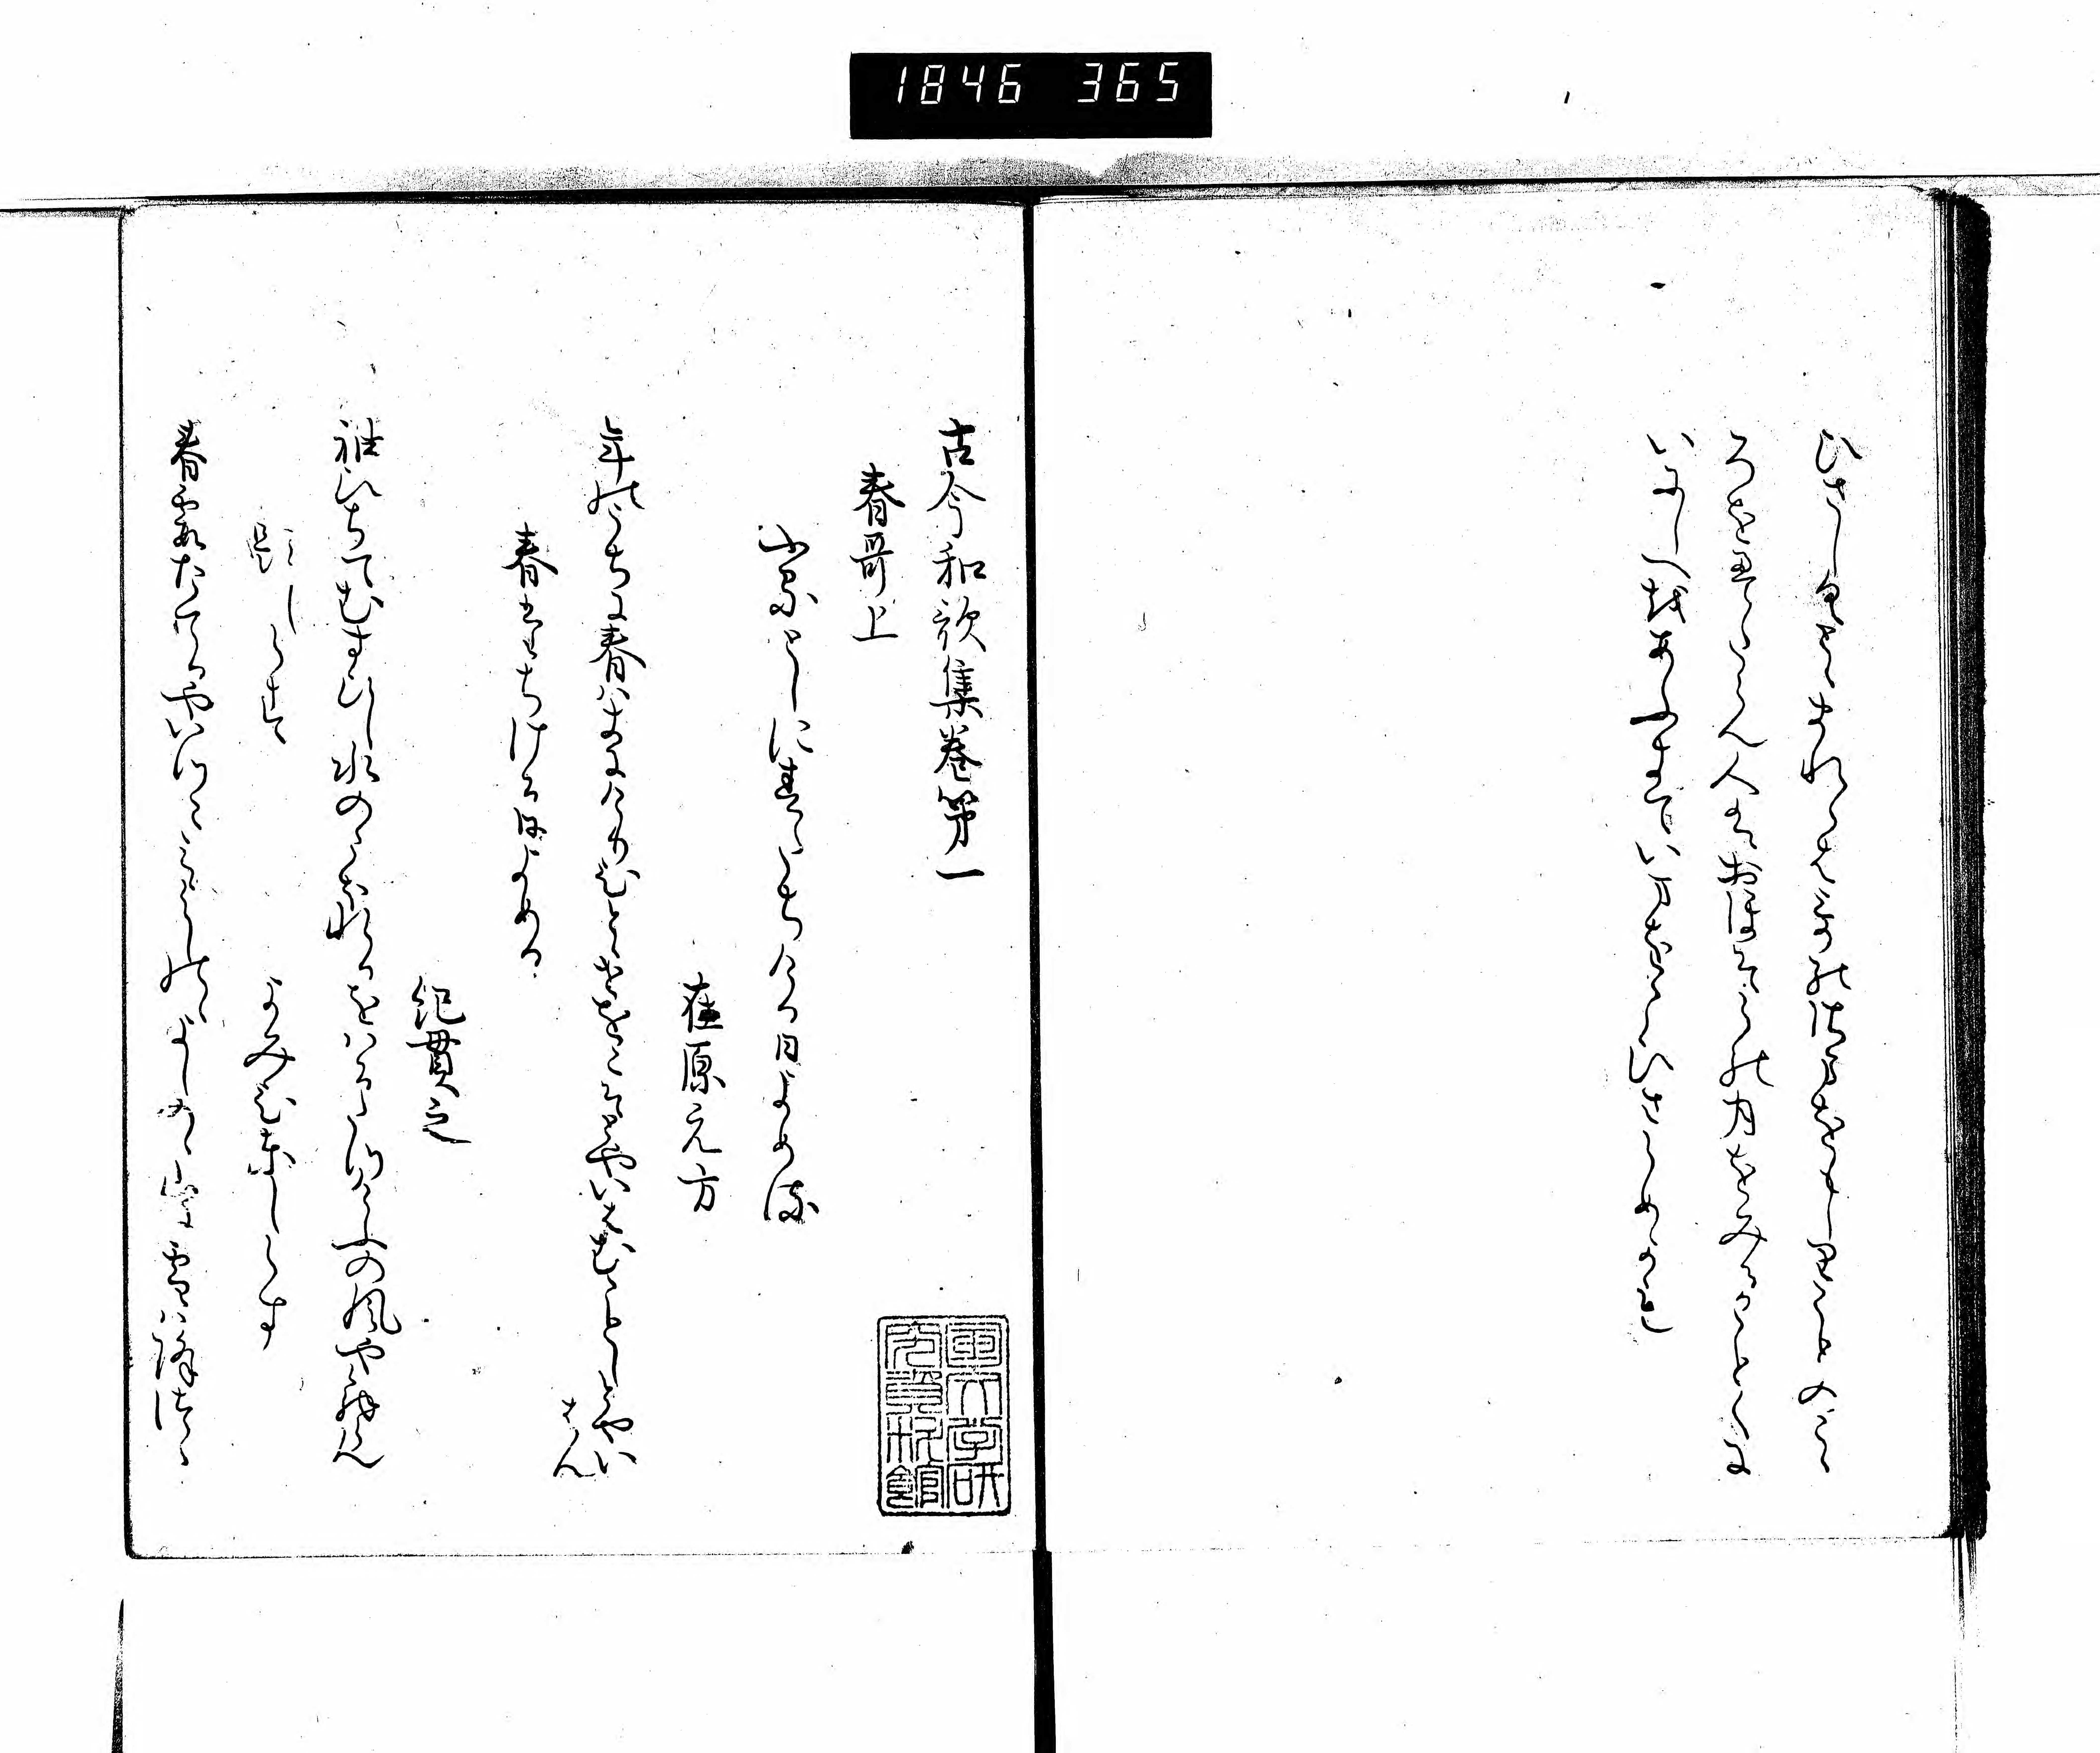 1846 365
ひさしくとゝまれらはうたのさまをもしりことのこゝ
ろをえたらん人はおほそらの月をみるかことくに
いにしへをあふきていまをこひさらめかも
古今和歌集巻第一
春哥上
ふるとしに春たちける日よめる
在原元方
年のうちに春はきにけりひとゝせをこそとやいはむことしとやい
はん
春たちける日よめる
紀貫之
袖ひちてむすひし水のこほれるをはるたつけふの風やとくらん
題しらす よみ人しらす
春霞たてるやいつこみよしのゝよしのゝ山に雪は降つゝ
国文学研
究資料館